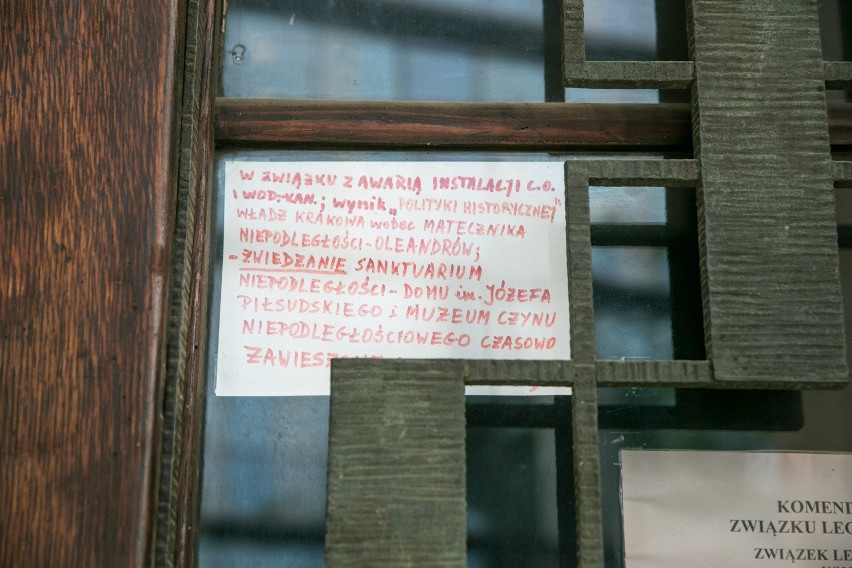 W ZWIĄZKU Z AWARIĄ INSTALACJI C.O.
I WOD.-KAN.; wynik „POLITYKI HISTORYCZNEJ"
WŁADZ KRAKOWA wobec MATECZNIKA
NIEPODLEGŁOŚCI-OLEANDRÓW;
-ZWIEDZANIE SANKTUARIUM
NIEPODLEGŁOŚCI-DOMU im. JÓZEFA
PIŁSUDSKIEGO i MUZEUM CZYNU
NIEPODLEGŁOŚCIOWEGO CZASOWO
KOMEND
ZWIĄZKU LEG
ZWIĄZEK LE